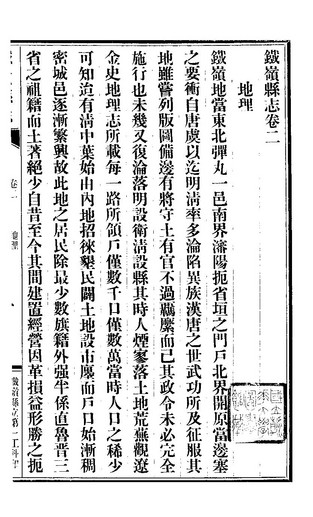 鐵嶺縣志卷二
地理
鐵嶺地當東北彈丸一邑南界瀋陽扼省垣之門戶北界開原當邊塞
之要衝自唐虞以迄明清率多淪陷異族漢唐之世武功所及征服其
地雖嘗列版圖備邊有將守土有官不過羈縻而已其政令未必完全
施行也未幾又復淪落明設衛清設縣其時人煙寥落土地荒蕪觀遼
金史地理志所載每一路所領戶僅數千口僅數萬當時人口之稀少
可知迨有清中葉始由內地招徠墾民闢土地設市廛而戶口始漸稠
密城邑逐漸繁興故此地之居民除最少數旗籍外強半係直魯晋三
省之祖籍而土著絕少自昔至今其間建置經營因革損益形勝之扼
卷二
地理
鐵嶺縣立第一工科印